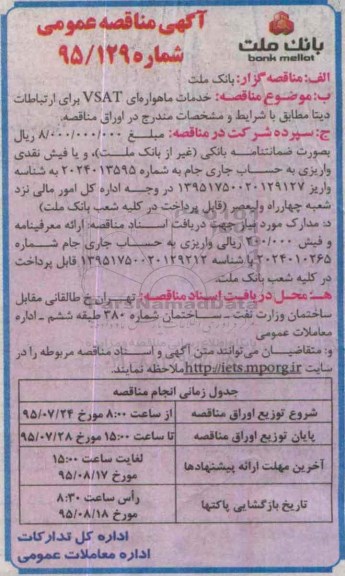 آگهی مناقصه عمومی
شماره ۹۵/۱۲۹
بانک ملت
bank mellat
الف: مناقصه گزار: بانک ملت
ب: موضوع مناقصه: خدمات ماهواره‌ای VSAT برای ارتباطات
دیتا مطابق با شرایط و مشخصات مندرج در اوراق مناقصه.
ج: سپرده شرکت در مناقصه: مبلغ ۸/۰۰۰/۰۰۰/۰۰۰ ریال
بصورت ضمانتنامه بانکی (غیر از بانک ملت)، و یا فیش نقدی
واریزی به حساب جاری جام به شماره ۲۰۲۴۰۱۳۵۹۵ به شناسه
واریز ۱۳۹۵۱۷۵۰۰۲۰۱۲۹۱۲۷ در وجه اداره کل امور مالی نزد
شعبه چهارراه ولیعصر (قابل پرداخت در کلیه شعب بانک ملت)
د: مدارک مورد نیاز جهت دریافت اسناد مناقصه: ارائه معرفینامه
و فیش ۲۰۰/۰۰۰ ریالی واریزی به حساب جاری جام شماره
۲۰۲۴۰۱۰۲۶۵ با شناسه ۱۳۹۵۱۷۵۰۰۲۰۱۲۹۲۱۲ قابل پرداخت
در کلیه شعب بانک ملت.
هـ: محل دریافت اسناد مناقصه: تهران خ طالقانی مقابل
ساختمان وزارت نفت ـ ساختمان شماره ۳۸۰ طبقه ششم ـ اداره
معاملات عمومی
و: متقاضیان می‌توانند متن آگهی و اسناد مناقصه مربوطه را در
سایت http://iets.mporg.ir ملاحظه نمایند.
جدول زمانی انجام مناقصه
شروع توزیع اوراق مناقصه از ساعت ۸:۰۰ مورخ ۹۵/۰۷/۲۴
پایان توزیع اوراق مناقصه تا ساعت ۱۵:۰۰ مورخ ۹۵/۰۷/۲۸
آخرین مهلت ارائه پیشنهادها لغایت ساعت ۱۵:۰۰
مورخ ۹۵/۰۸/۱۷
تاریخ بازگشایی پاکتها رأس ساعت ۸:۳۰
مورخ ۹۵/۰۸/۱۸
اداره کل تدارکات
اداره معاملات عمومی